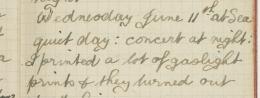 Wednesday June 11th at Sea
quiet day: concert at night:
I printed a lot of gaslight
prints & they turned out